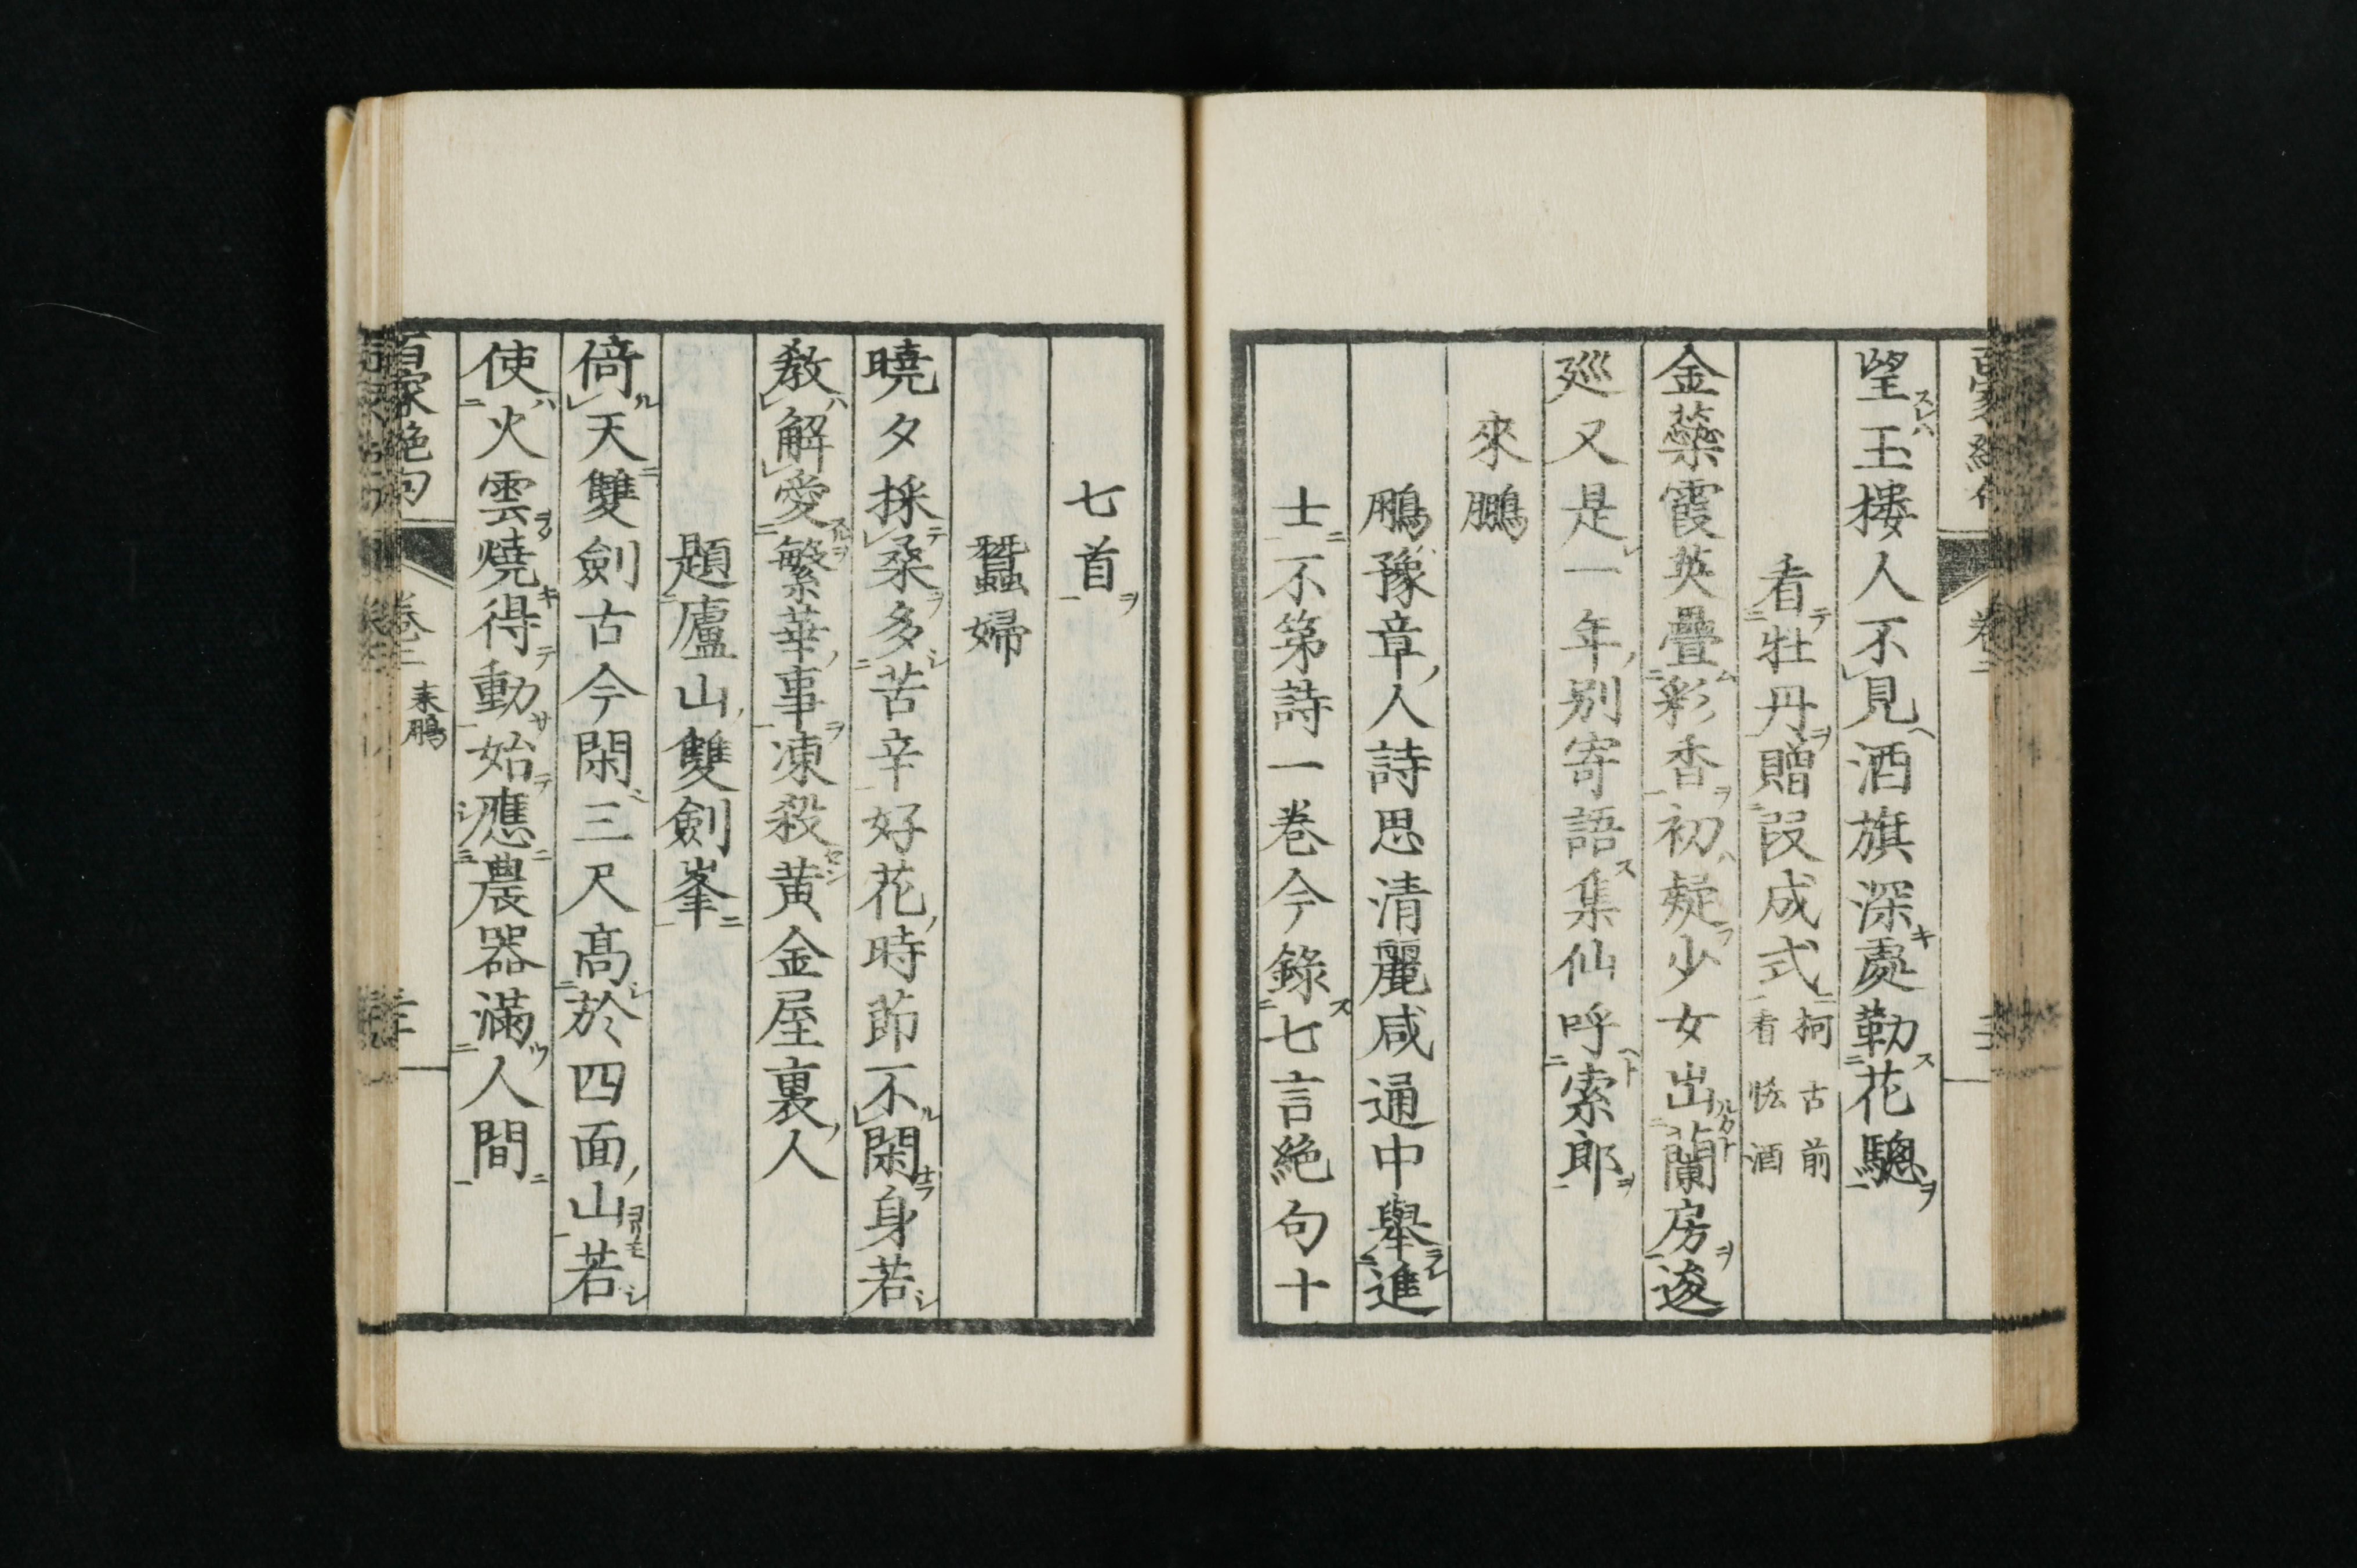 望玉樓人不見酒旗深處勒花驄
看牡丹贈段成式柯古前看恡酒
金蘂霞英疊彩香初疑少女出蘭房逡
廵又是一年别寄語集仙呼索郎
來鵬
鵬豫章人詩思清麗咸通中舉進
士不第詩一巻今錄七言絶句十
七首
蠶婦
曉夕採桒多苦辛好花時莭不閑身若
敎解愛繁華事凍殺黄金屋裏人
題廬山雙劍峯
倚天雙劍古今閑三尺髙於四面山若
使火雲燒得動始應農器滿人間
百家絶句
卷二
来鵬